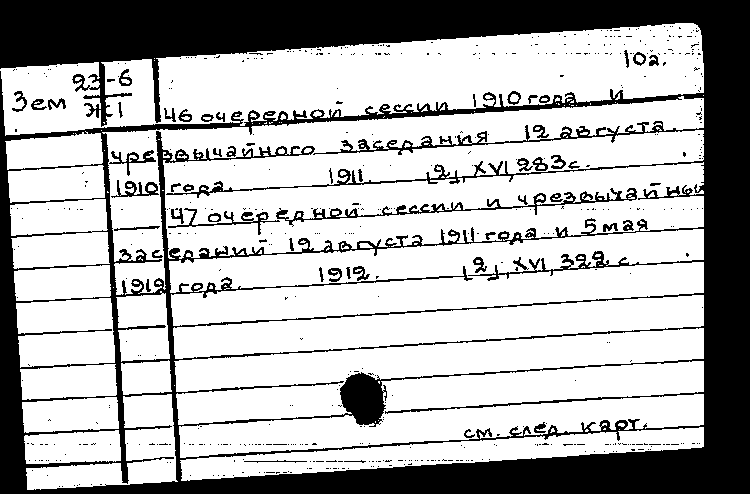 10а.
Зем 23-6
Ж1
46 очередной сессии 1910 года и
чрезвычайного заседания 12 августа
1910 года. 1911. [2], XVI, 283 с.
47 очередной сессии и чрезвычайных
заседаний 12 августа 1911 года и 5 мая
1912 года. 1912. [2], XVI, 322 с.
см. след. карт.